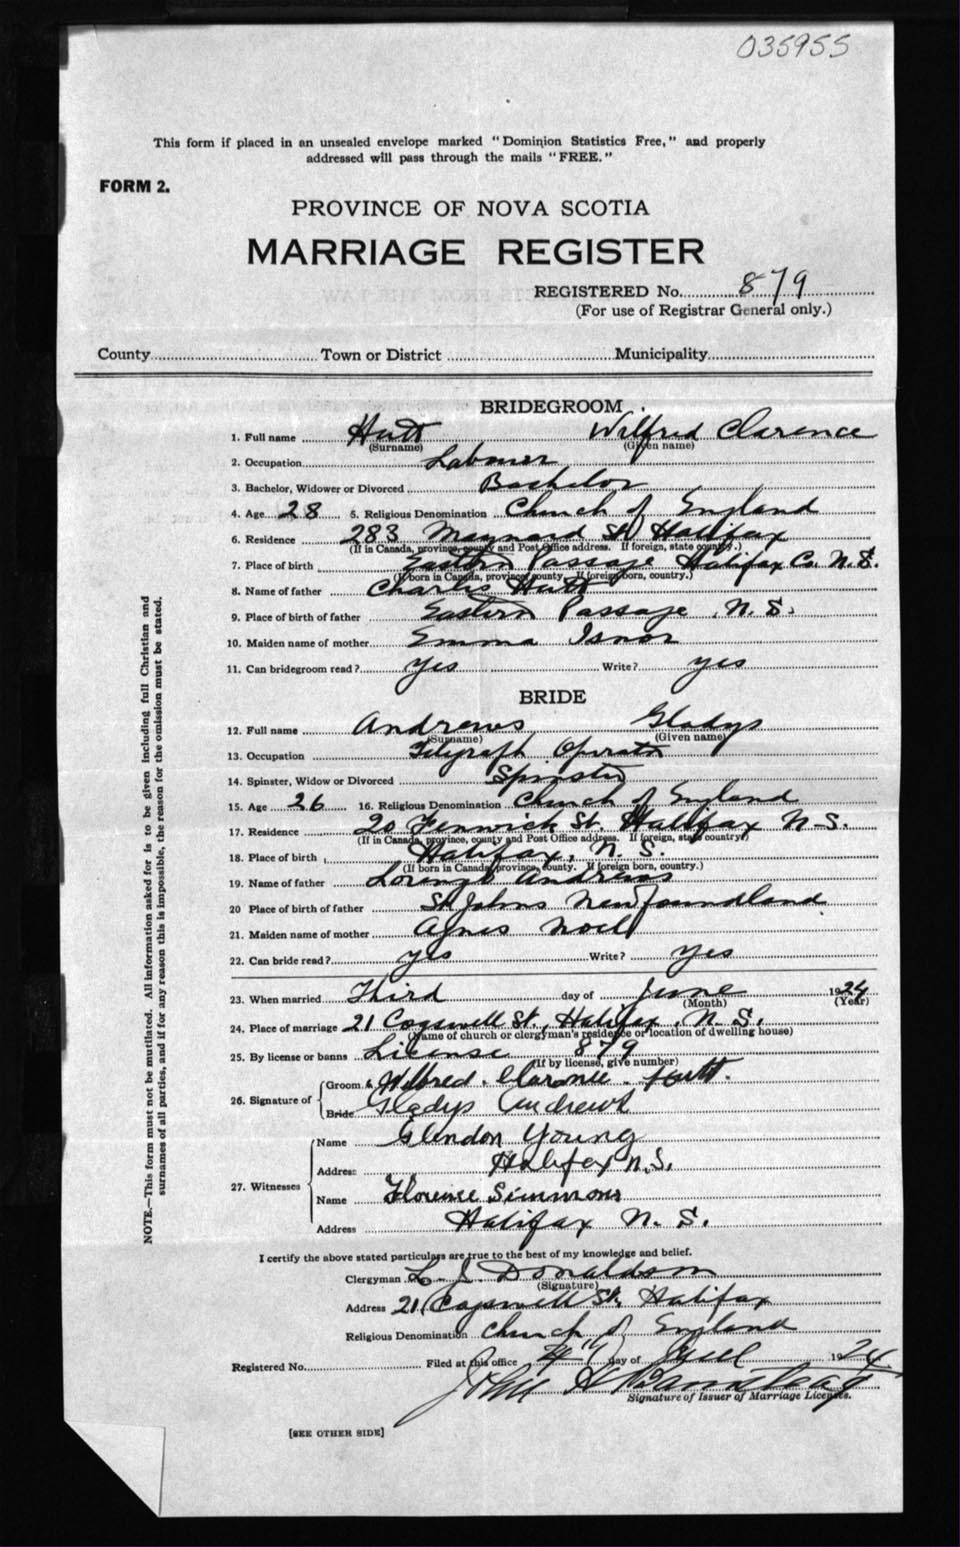 035955
This form if placed in an unsealed envelope marked "Dominion Statistics Free," and properly
addressed will pass through the mails "FREE."
FORM 2.
PROVINCE OF NOVA SCOTIA
MARRIAGE REGISTER
REGISTERED No. 879
(For use of Registrar General only.)
County Town or District Municipality
BRIDEGROOM
1. Full name Hutt Wilfred Clarence
(Surname) (Given name)
2. Occupation Labourer
3. Bachelor, Widower or Divorced Bachelor
4. Age 28 5. Religious Denomination Church of England
6. Residence 283 Maynard St Halifax
(If in Canada, province, county and Post Office address. If foreign, state country.)
7. Place of birth Eastern Passage Halifax Co. N.S.
(If born in Canada, province, county. If foreign born, country.)
8. Name of father Charles Hutt
9. Place of birth of father Eastern Passage, N.S.
10. Maiden name of mother Emma Isnor
11. Can bridegroom read? yes Write? yes
BRIDE
12. Full name Andrews Gladys
(Surname) (Given name)
13. Occupation Telegraph Operator
14. Spinster, Widow or Divorced Spinster
15. Age 26 16. Religious Denomination Church of England
17. Residence 20 Fenwick St. Halifax N.S.
(If in Canada, province, county and Post Office address. If foreign, state country.)
18. Place of birth Halifax, N.S.
(If born in Canada, province, county. If foreign born, country.)
19. Name of father Lorenzo Andrews
20 Place of birth of father St. Johns Newfoundland
21. Maiden name of mother Agnes Noel
22. Can bride read? yes Write? yes
23. When married Third day of June 1924
(Month) (Year)
24. Place of marriage 21 Cogswell St., Halifax, N.S.
(Name of church or clergyman's residence or location of dwelling house)
25. By license or banns License 879
(If by license, give number)
26. Signature of
Groom Wilfred Clarence Hutt.
Bride Gladys Andrews
27. Witnesses
Name Glendon Young
Address Halifax N.S.
Name Florence Simmons
Address Halifax N.S.
I certify the above stated particulars are true to the best of my knowledge and belief.
Clergyman L. J. Donaldson
(Signature)
Address 21 Cogswell St. Halifax
Religious Denomination Church of England
Registered No. Filed at this office day of 1924
John H
Signature of Issuer of Marriage Licenses.
[SEE OTHER SIDE]
NOTE.—This form must not be mutilated. All information asked for is to be given including full Christian and
surnames of all parties, and if for any reason this is impossible, the reason for the omission must be stated.